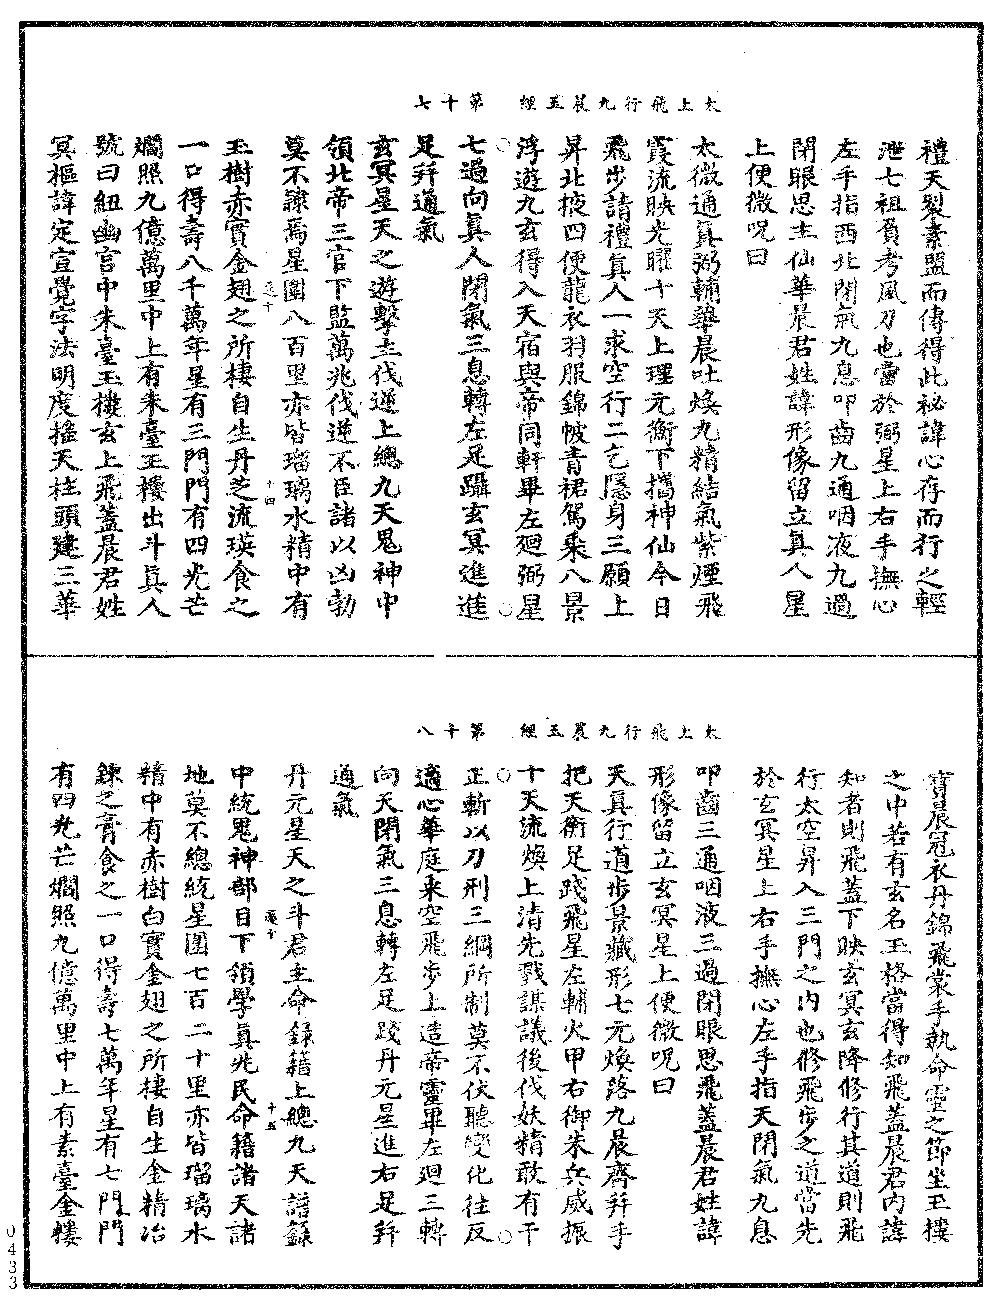 太上飛行九晨玉經　第十七
禮天製素盟而傳得此祕諱心存而行之輕
泄七祖負考風刀也當於弼星上右手撫心
左手指西北閉氣九息叩齒九通咽液九過
閉眼思主仙華晨君姓諱形像留立真人星
上便微呪曰
太微通真弼輔華晨吐煥九精結氣紫煙飛
霞流映光曜十天上理元衡下攜神仙今日
飛步請禮真人一求空行二乞隱身三願上
昇北掖四便龍衣羽服錦帔青裙駕乘八景
浮遊九玄得入天宿與帝同軒畢左迴弼星
七過向真人閉氣三息轉左足躡玄冥進進
足并通氣
玄冥星天之遊擊主伐逆上總九天鬼神中
領北帝三官下監萬兆伐逆不臣諸以凶勃
莫不隸焉星圍八百里亦皆瑠璃水精中有
十四
玉樹亦實金翅之所棲自生丹芝流瑛食之
一口得壽八千萬年星有三門門有四光芒
爛照九億萬里中上有朱臺玉樓出斗真人
號曰紐幽宮中朱臺玉樓玄上飛蓋晨君姓
冥樞諱定宣覺字法明度搖天柱頭建三華
太上飛行九晨玉經　第十八
寶晨冠衣丹錦飛裳手執命靈之節坐玉樓
之中若有玄名玉格當得知飛蓋晨君內諱
知者則飛蓋下映玄冥玄降修行其道則飛
行太空昇入三門之內也修飛步之道當先
於玄冥星上右手撫心左手指天閉氣九息
叩齒三通咽液三過閉眼思飛蓋晨君姓諱
形像留立玄冥星上便微呪曰
天真行道步景藏形七元煥落九晨齊并手
把天衡足踐飛星左輔火甲右御朱兵威振
十天流煥上清先戮謀議後伐妖精敢有干
正斬以刀刑三綱所制莫不伏聽變化往反
適心華庭乘空飛步上造帝靈畢左迴三轉
向天閉氣三息轉左足踐丹元星進右足并
通氣
丹元星天之斗君主命錄籍上總九天譜錄
中統鬼神部目下領學真兆民命籍諸天諸
十五
地莫不總統星圍七百二十里亦皆瑠璃水
精中有赤樹白實金翅之所棲自生金精冶
鍊之膏食之一口得壽七萬年星有七門門
有四光芒爛照九億萬里中上有素臺金樓
0433